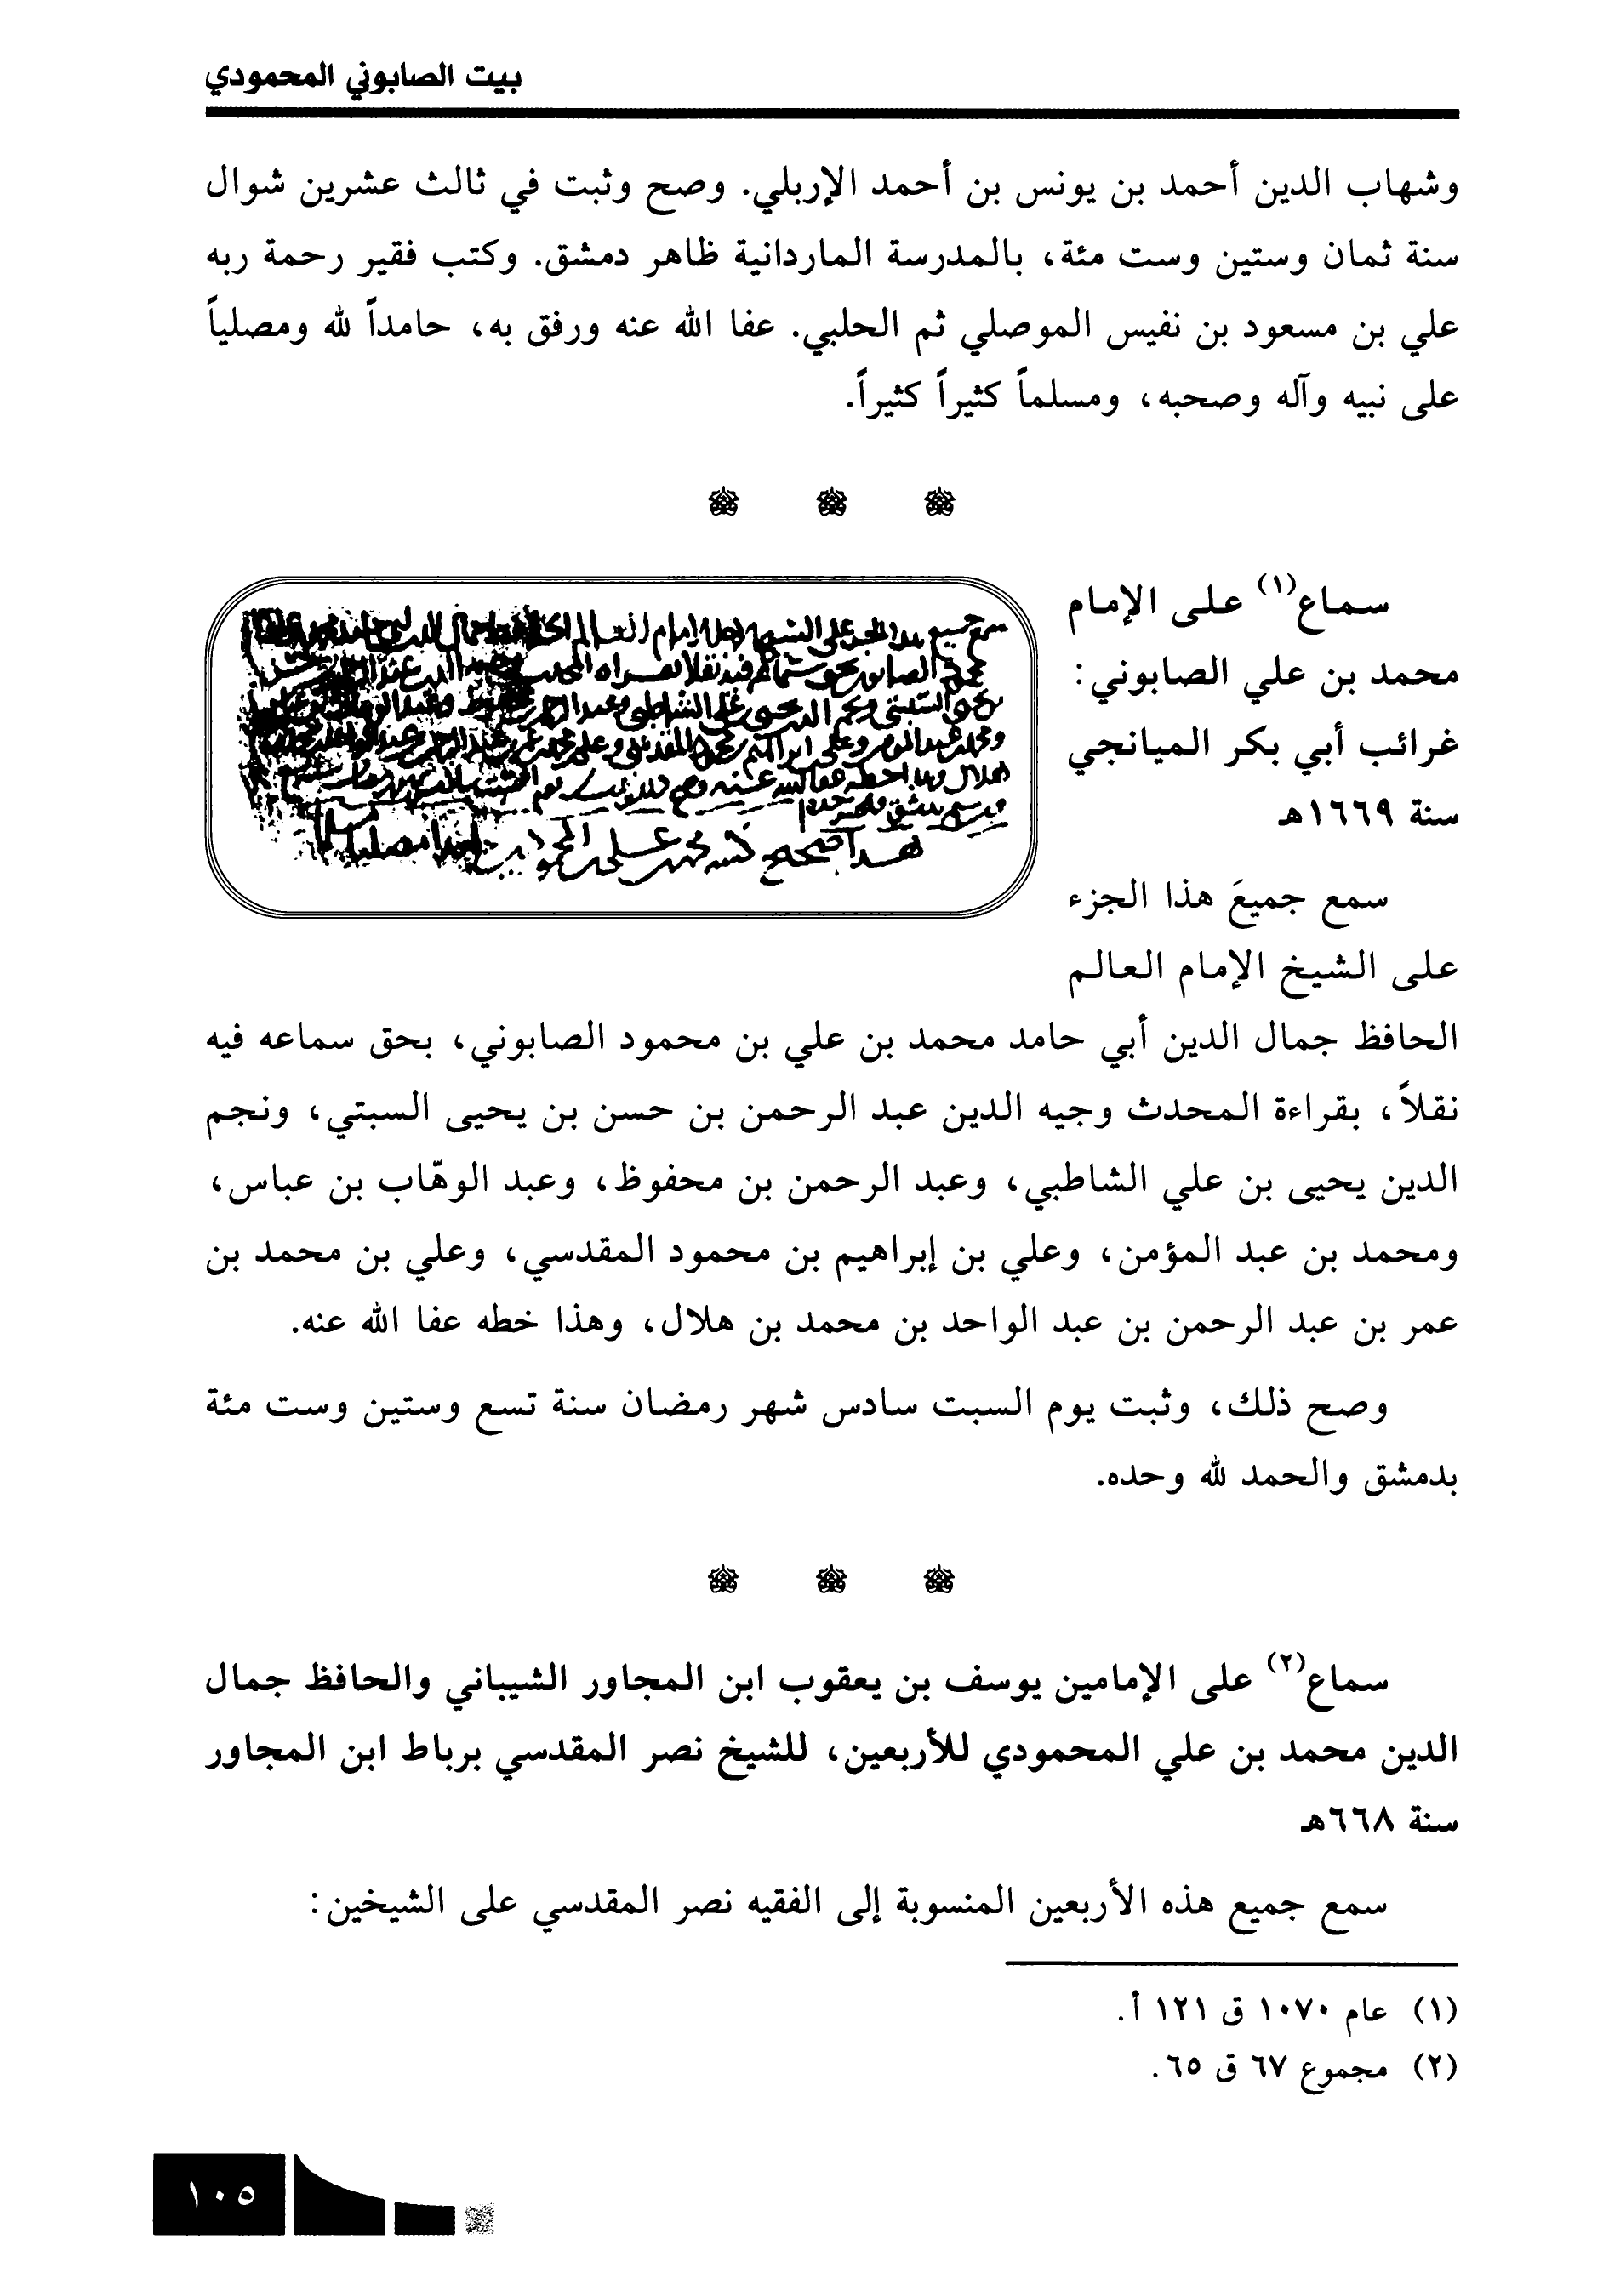 بيت الصابوني المحمودي
وشهاب الدين أحمد بن يونس بن أحمد الإربلي. وصح وثبت في ثالث عشرين شوال
سنة ثمان وستين وست مئة، بالمدرسة الماردانية ظاهر دمشق. وكتب فقير رحمة ربه
علي بن مسعود بن نفيس الموصلي ثم الحلبي. عفا الله عنه ورفق به، حامداً لله ومصلياً
على نبيه وآله وصحبه، ومسلماً كثيراً كثيراً.
سماع(١) على الإمام
محمد بن علي الصابوني:
غرائب أبي بكر الميانجي
سنة ١٦٦٩هـ
سمع جميعَ هذا الجزء
على الشيخ الإمام العالم
الحافظ جمال الدين أبي حامد محمد بن علي بن محمود الصابوني، بحق سماعه فيه
نقلاً، بقراءة المحدث وجيه الدين عبد الرحمن بن حسن بن يحيى السبتي، ونجم
الدين يحيى بن علي الشاطبي، وعبد الرحمن بن محفوظ، وعبد الوهّاب بن عباس،
ومحمد بن عبد المؤمن، وعلي بن إبراهيم بن محمود المقدسي، وعلي بن محمد بن
عمر بن عبد الرحمن بن عبد الواحد بن محمد بن هلال، وهذا خطه عفا الله عنه.
وصح ذلك، وثبت يوم السبت سادس شهر رمضان سنة تسع وستين وست مئة
بدمشق والحمد لله وحده.
سماع(٢) على الإمامين يوسف بن يعقوب ابن المجاور الشيباني والحافظ جمال
الدين محمد بن علي المحمودي للأربعين، للشيخ نصر المقدسي برباط ابن المجاور
سنة ٦٦٨هـ
سمع جميع هذه الأربعين المنسوبة إلى الفقيه نصر المقدسي على الشيخين:
(١) عام ١٠٧٠ ق ١٢١ أ.
(٢) مجموع ٦٧ ق ٦٥.
١٠٥